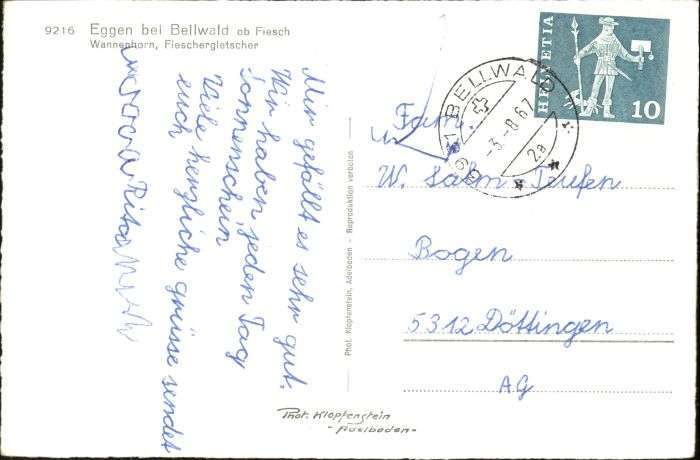 9216 Eggen bei Bellwald ob Fiesch
Wannenhorn, Fieschergletscher
Mir gefällt es sehr gut.
Wir haben jeden Tag
Sonnenschein
Viele herzliche grüsse sendet
euch
Rita
Phot. Klopfenstein, Adelboden - Reproduktion verboten
Phot. Klopfenstein
-Adelboden-
HELVETIA
10
BELLWALD
-3.-8.67
2a
Fam.
W. Salm-Teufen
Bogen
5312 Döttingen
AG